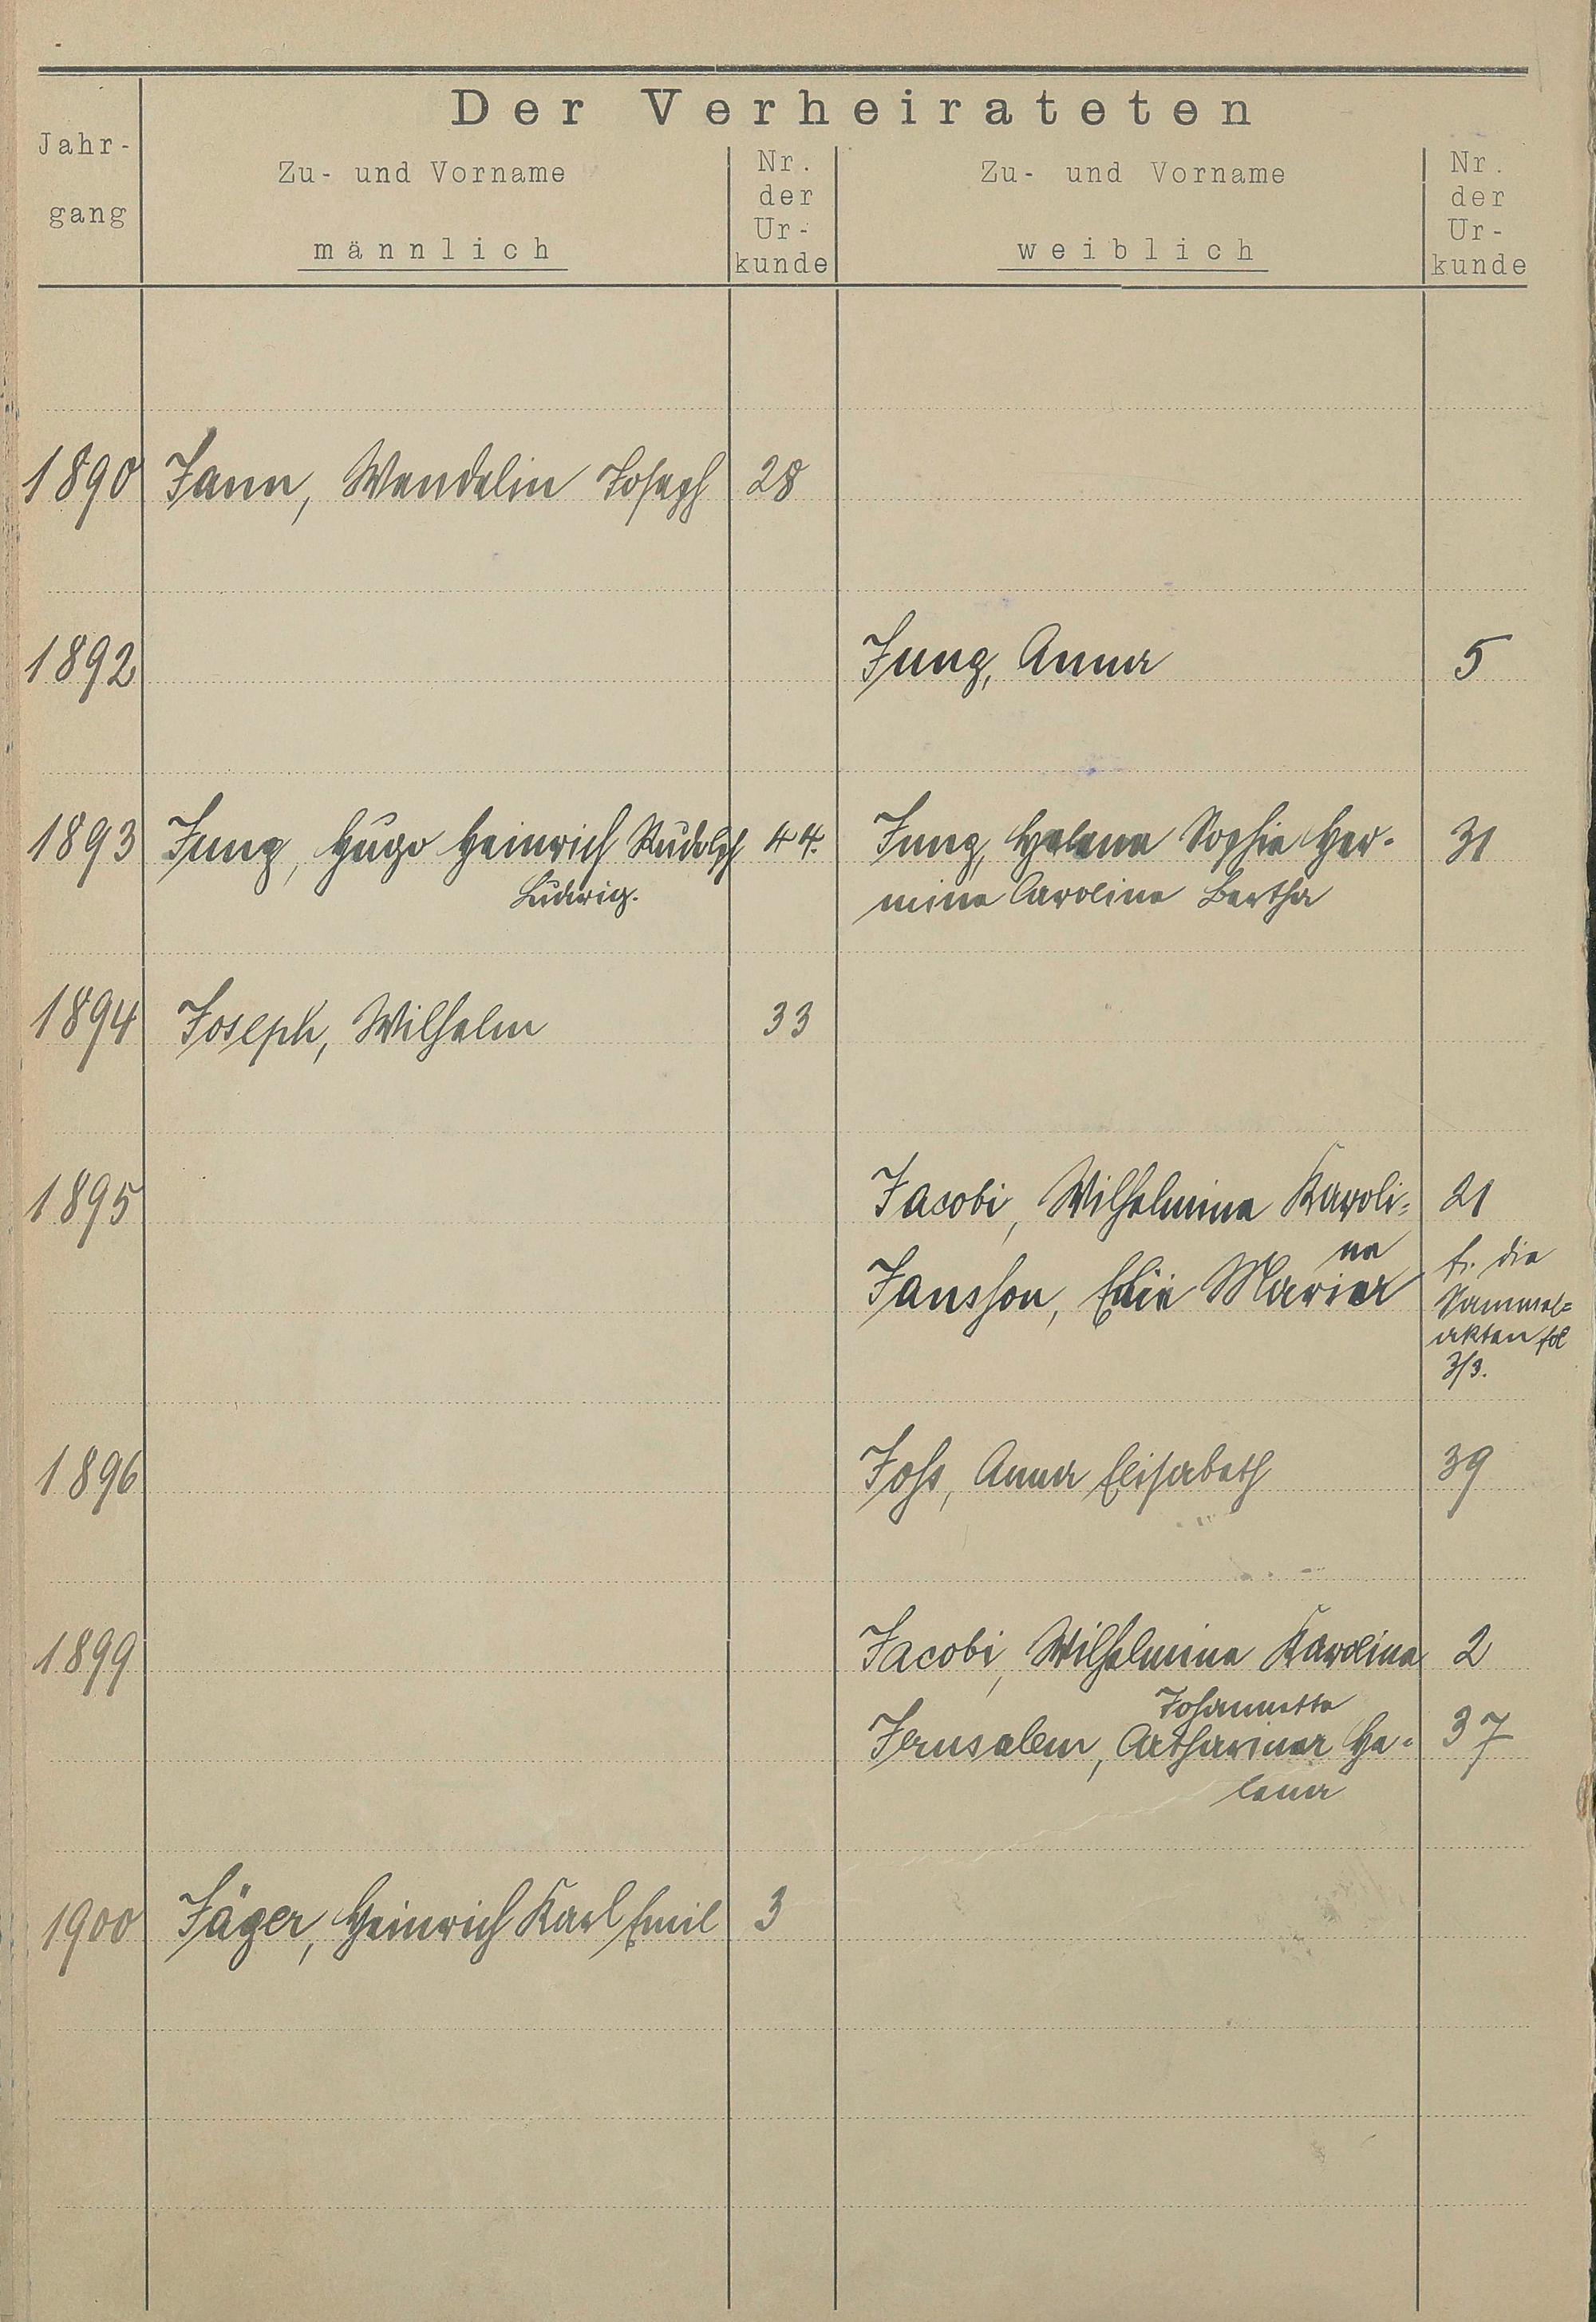 Der Verheirateten
Jahr-
gang
Zu- und Vorname
männlich
Nr.
der
Ur-
kunde
Zu- und Vorname
weiblich
Nr.
der
Ur-
kunde
1890 Jann, Wendelin Joseph 28
1892 Jung, Anna 5
1893 Jung, Hugo Heinrich Rudolph 44. Jung, Helene Sophie Her- 31
Ludwig. mine Caroline Bertha
1894 Joseph, Wilhelm 33
1895 Jacobi, Wilhelmine Karoli= 21
ne
Jansson, Maria
f. die
Sammel=
akten fol
3/3.
1896 Johs, Anna Elisabeth 39
1899 Jacobi, Wilhelmine Karoline 2
Johannette
Jerusalem, Catharina He= 37
lena
1900 Jäger, Heinrich Karl Emil 3